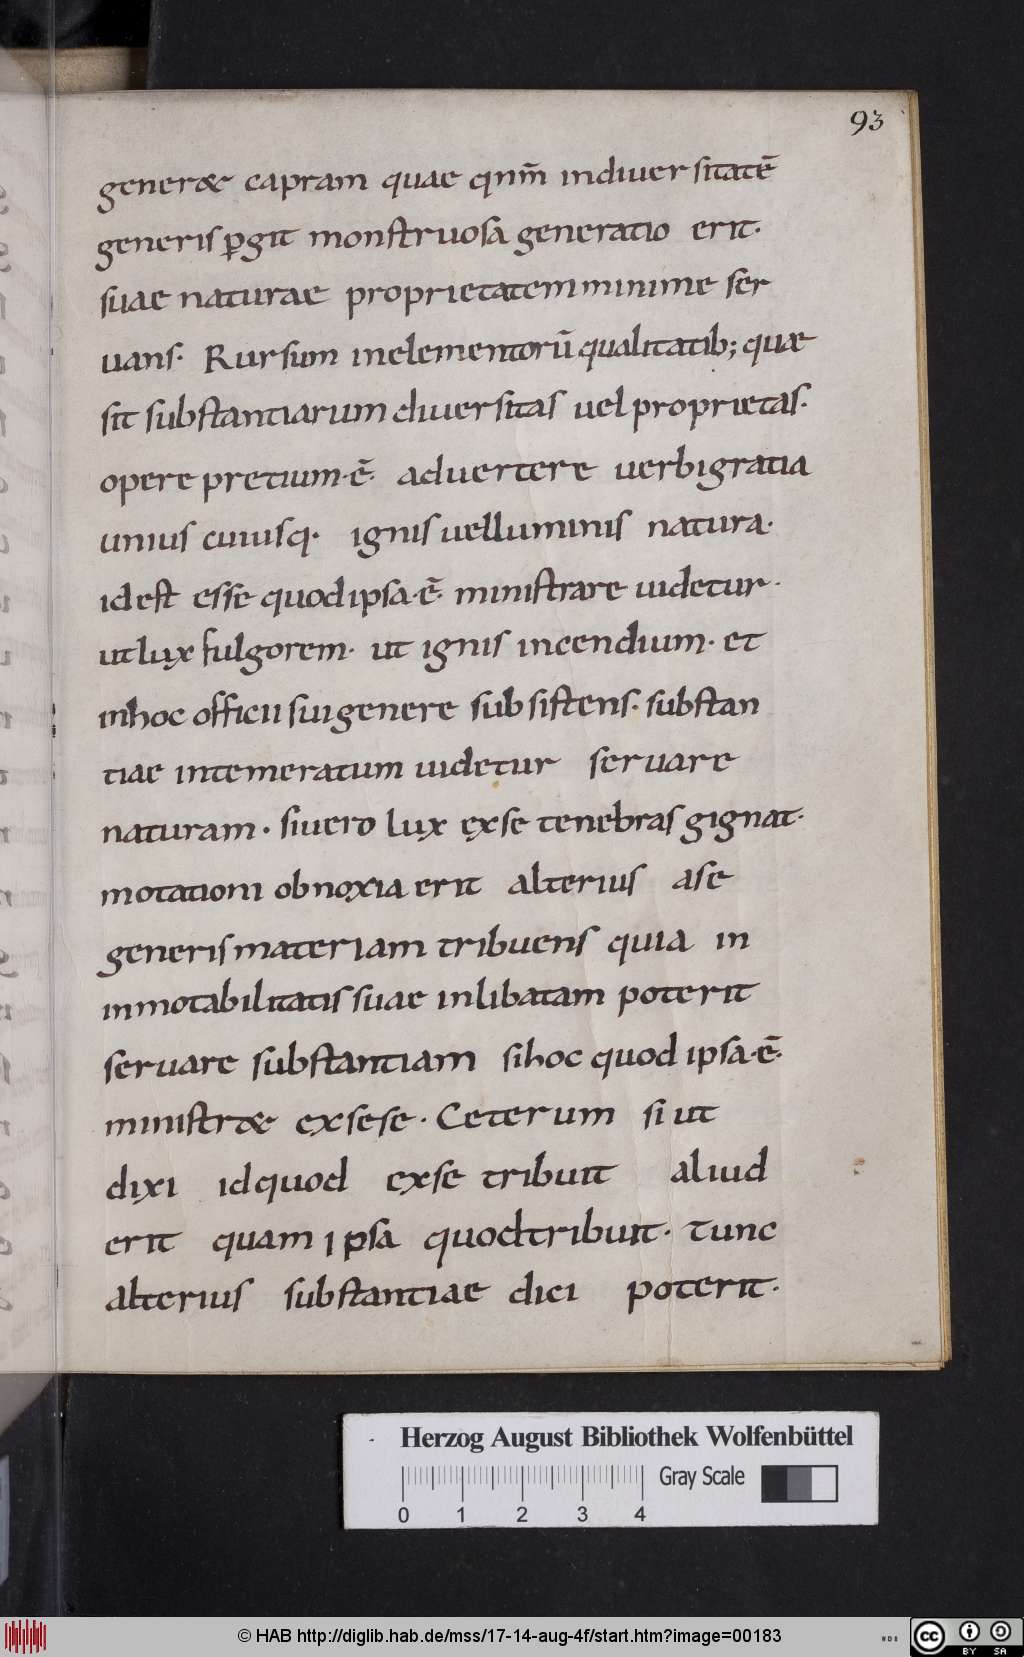 93
gener& capram quae qnm̄ indiuersitatē
generis ꝑgit monstruosa generatio erit·
suae naturae proprietatem minime ser
uans· Rursum inelementorū qualitatib; quae
sit substantiarum diuersitas uel proprietas·
opere pretium·ē· aduertere uerbigratia
unius cuiusq· ignis uelluminis natura·
id est esse quod ipsa·ē· ministrare uidetur·
ut lux fulgorem· ut ignis incendium· et
inhoc officii sui genere subsistens· substan
tiae intemeratum uidetur seruare
naturam· siuero lux exse tenebras gignat·
motationi obnoxia erit alterius ase
generis materiam tribuens quia in
inmotabilitatis suae inlibatam poterit
seruare substantiam sihoc quod ipsa·ē·
ministr& exsese· Ceterum si ut
dixi idquod exse tribuit aliud
erit quam ipsa quodtribuit· Tunc
alterius substantiae dici poterit·
Herzog August Bibliothek Wolfenbüttel
Gray Scale
0 1 2 3 4
© HAB http://diglib.hab.de/mss/17-14-aug-4f/start.htm?image=00183
WDB
cc BY SA